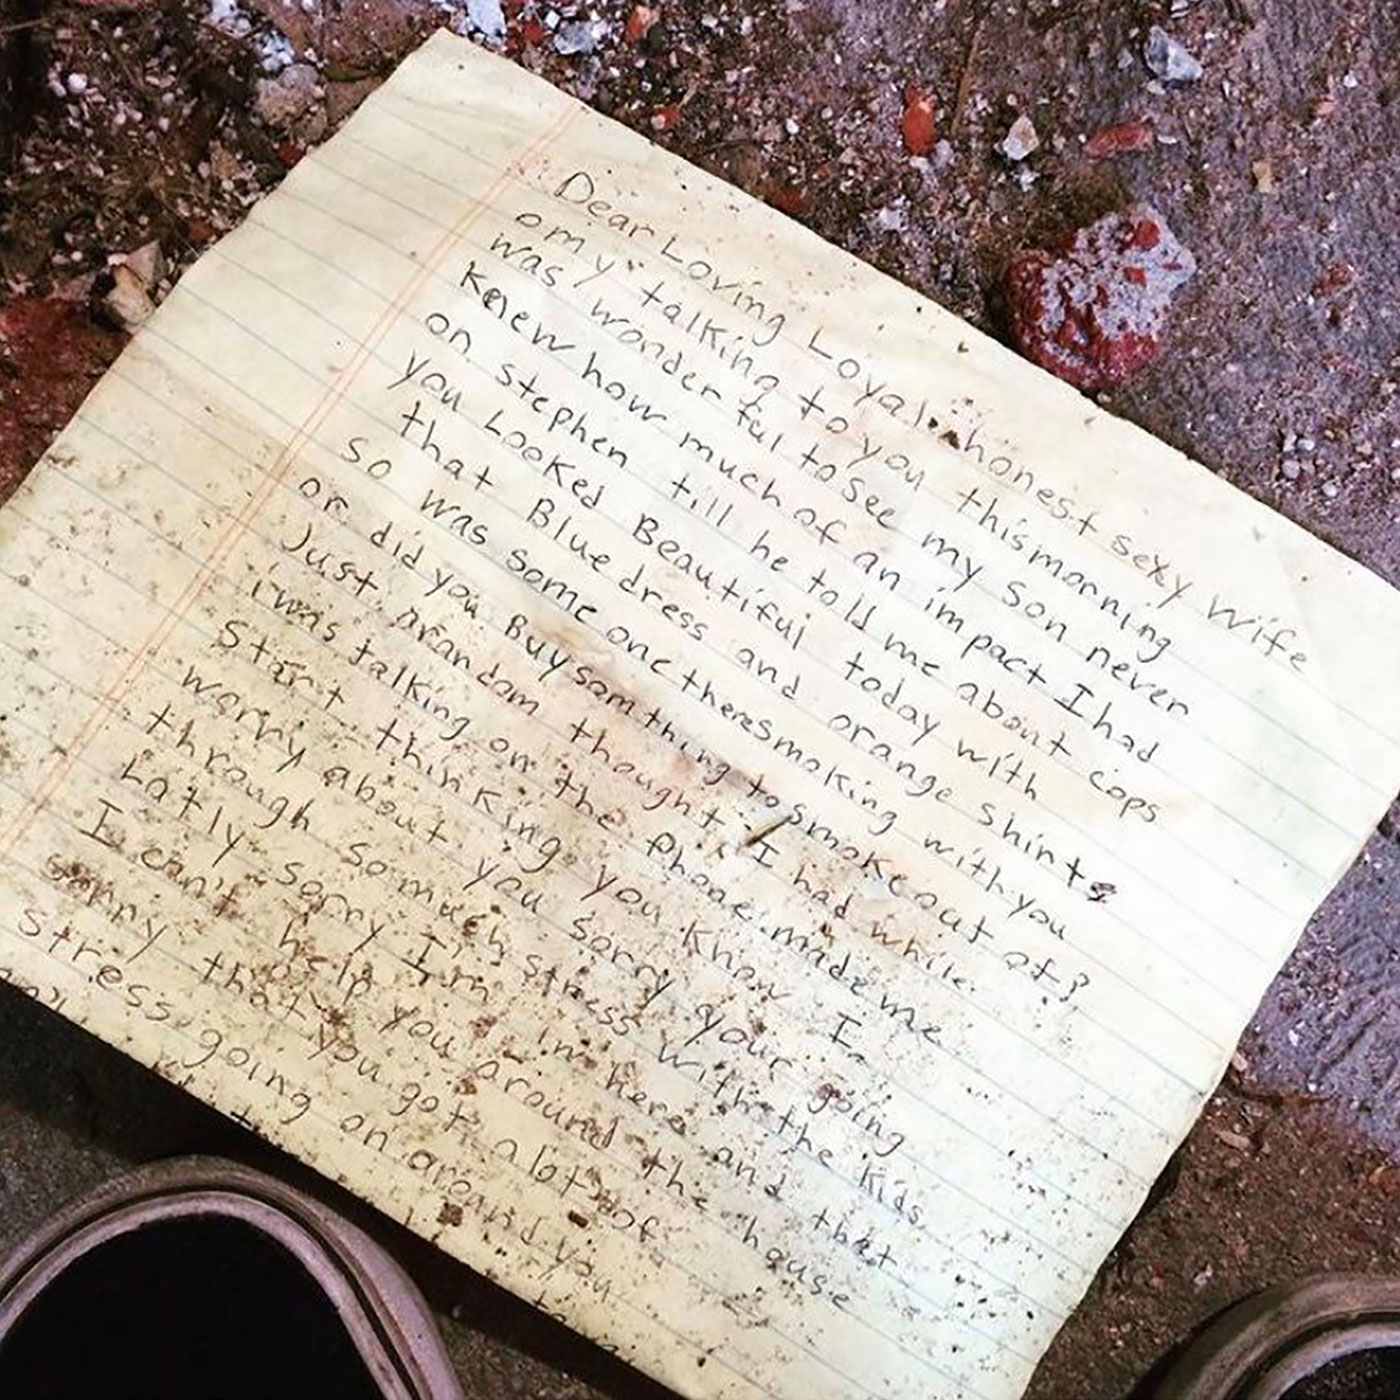 Dear Loving Loyal honest sexy wife
omy talking to you this morning
was wonderful to see my son never
knew how much of an impact I had
on stephen till he told me about cops
you Looked Beautiful today with
that Blue dress and orange shirt
so was some one there smoking with you
or did you Buy somthing to smoke out of?
Just a random thought I had while
i was talking on the phone made me
Start thinking you know I
worry about you sorry your going
through so much stress with the kids
Latly sorry I'm in here and that
I can't help you around the house
sorry that you got alot of
stress going on around you